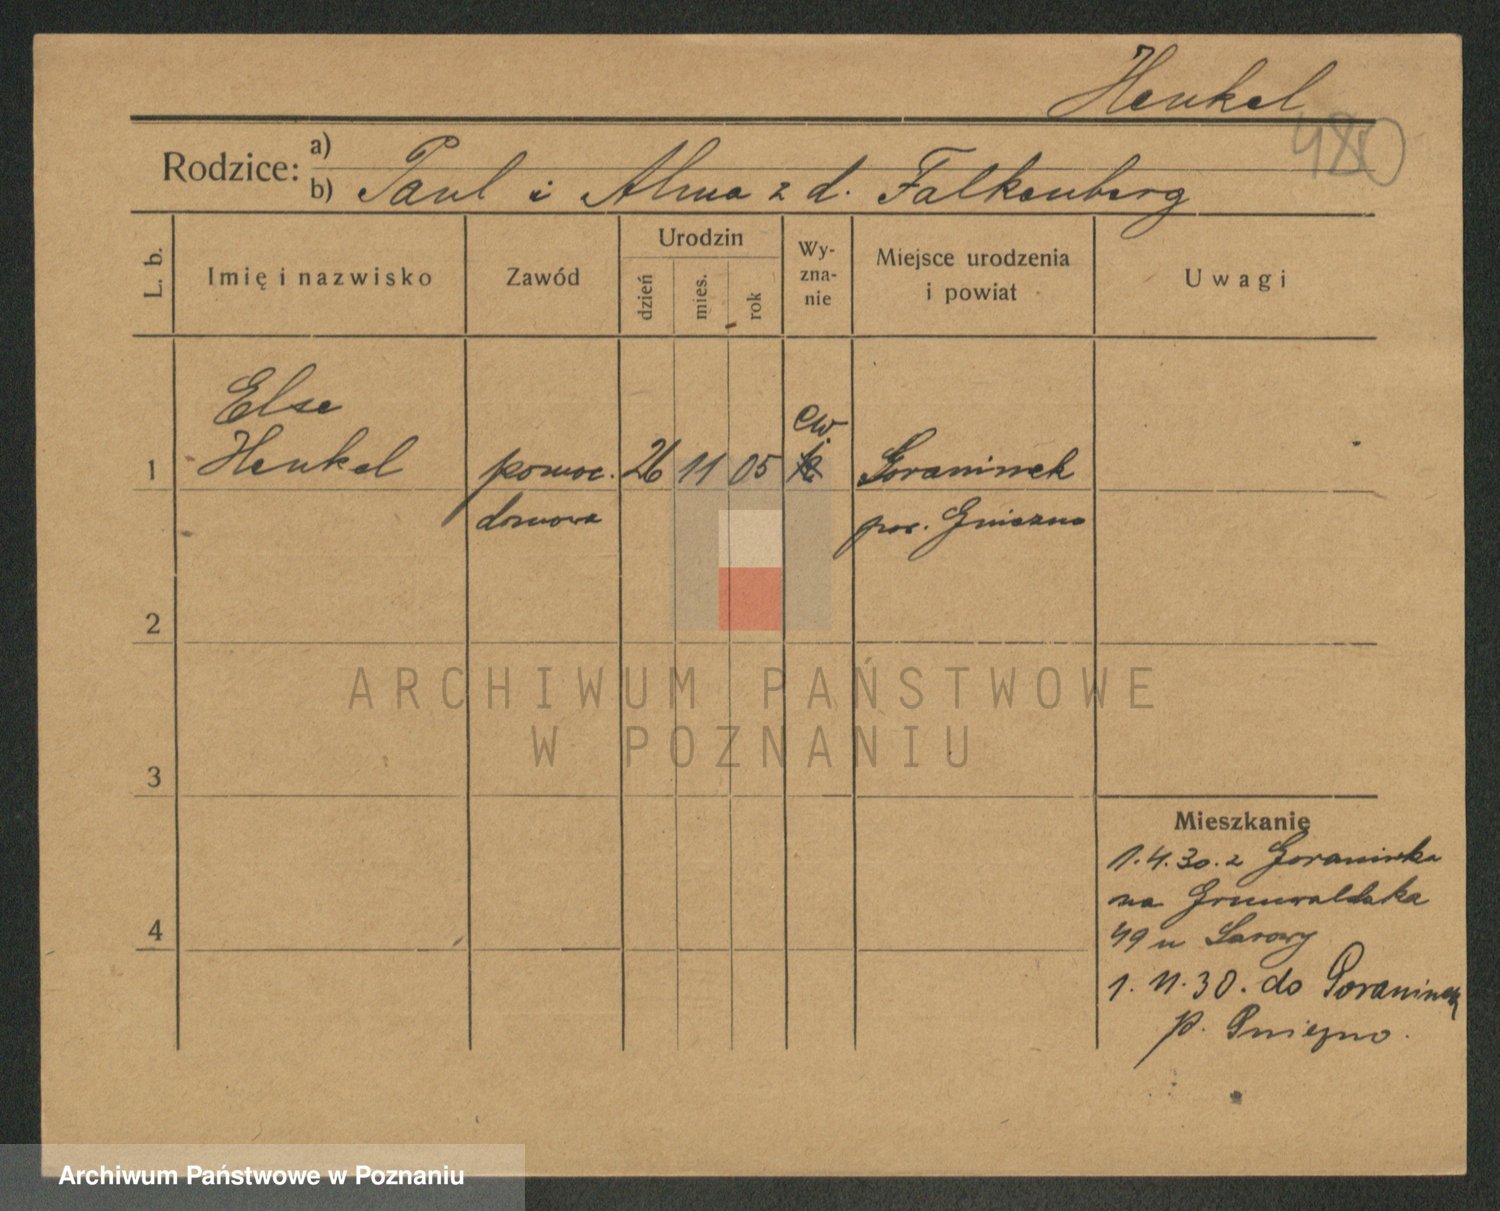 Henkel
480
Rodzice: a)
b) Paul i Alma z d. Falkenberg
L. b.
Imię i nazwisko
Zawód
Urodzin
dzień
mies.
rok
Wy-
zna-
nie
Miejsce urodzenia
i powiat
Uwagi
Else
ew
1 Henkel pomoc. 26 11 05 Goraninek
domowa pow. Gniezno
2
3
4
ARCHIWUM PAŃSTWOWE
W POZNANIU
Mieszkanie
1.4.30. z Goraninka
na Grunwaldzka
49 u
1. 11. 30. do Goraninek
p. Gniezno.
Archiwum Państwowe w Poznaniu